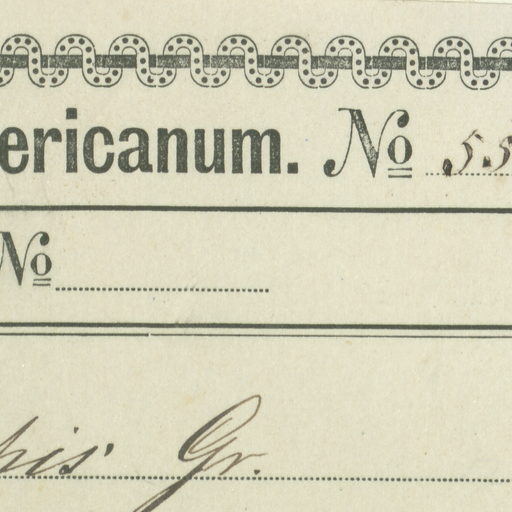 ericanum. No 55
No
Gr.